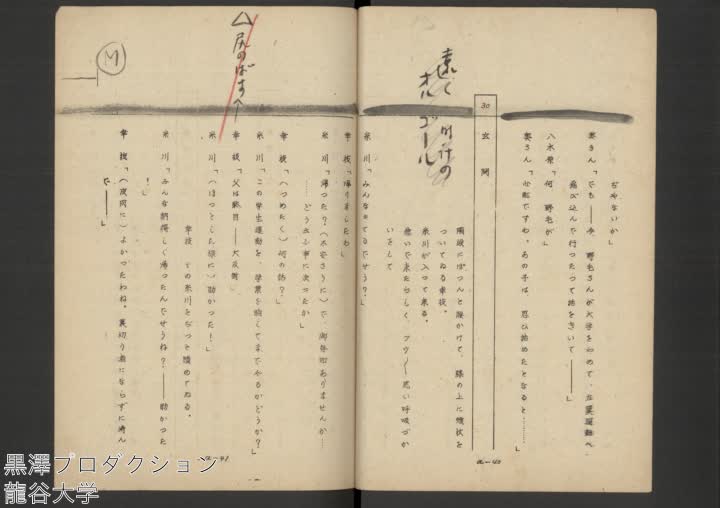 ぢやないか」
奥さん「でも――今、野毛さんが大学をやめて、左翼運動へ
飛び込んで行つたつて話をきいて――」
八木原「何、野毛が」
奥さん「心配ですわ、あの子は、思ひ詰めたとなると………」
30 玄関
遠く
オルゴール
階段にぽつんと腰かけて、膝の上に頬杖を
ついてゐる幸枝。
糸川が入つて来る。
急いで来たらしく、フウ／＼荒い呼吸づか
いをして
糸川「みんな来てるでせう？」
a-40
幸枝「帰りましたわ」
糸川「帰つた？
どういふ事に決つたか」
幸枝「（つめたく）何の話？」
糸川「この学生運動を、学業を賭してまでやるかどうか？」
幸枝「父は駄目――大反対」
糸川「（ほつとした様に）助かつた！」
幸枝、その糸川をぢつと眺めてゐる。
糸川「みんな納得しく帰つたんでせうね？――助かつた
！」
幸枝「（皮肉に）よかつたわね。裏切り者にならずに済ん
で――」
a-41
尻のばすへ
M
黒澤プロダクション
龍谷大学